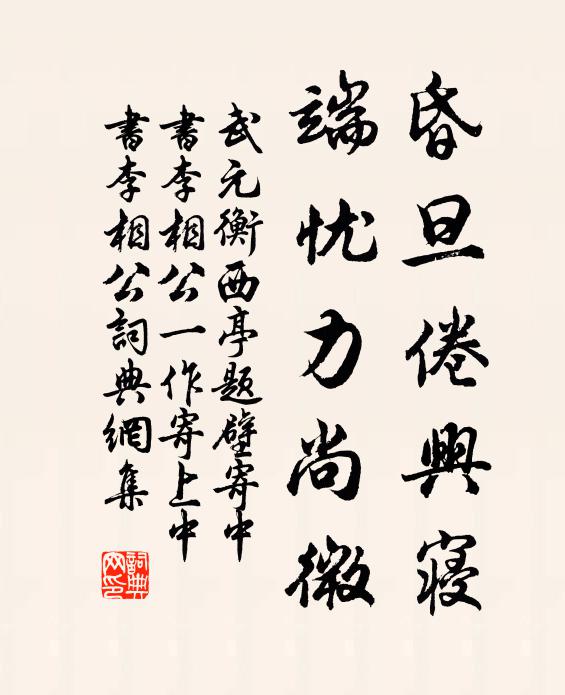 昏旦倦興寝
端忧力尚微
武元衡西亭题壁寄中
書李相公一作寄上中
書李相公詞典網集
詞典网印